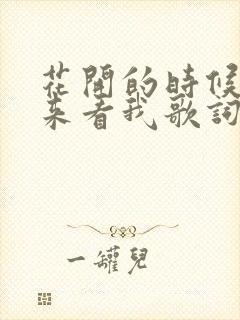 花開的時候
来看我歌詞
一罐兒